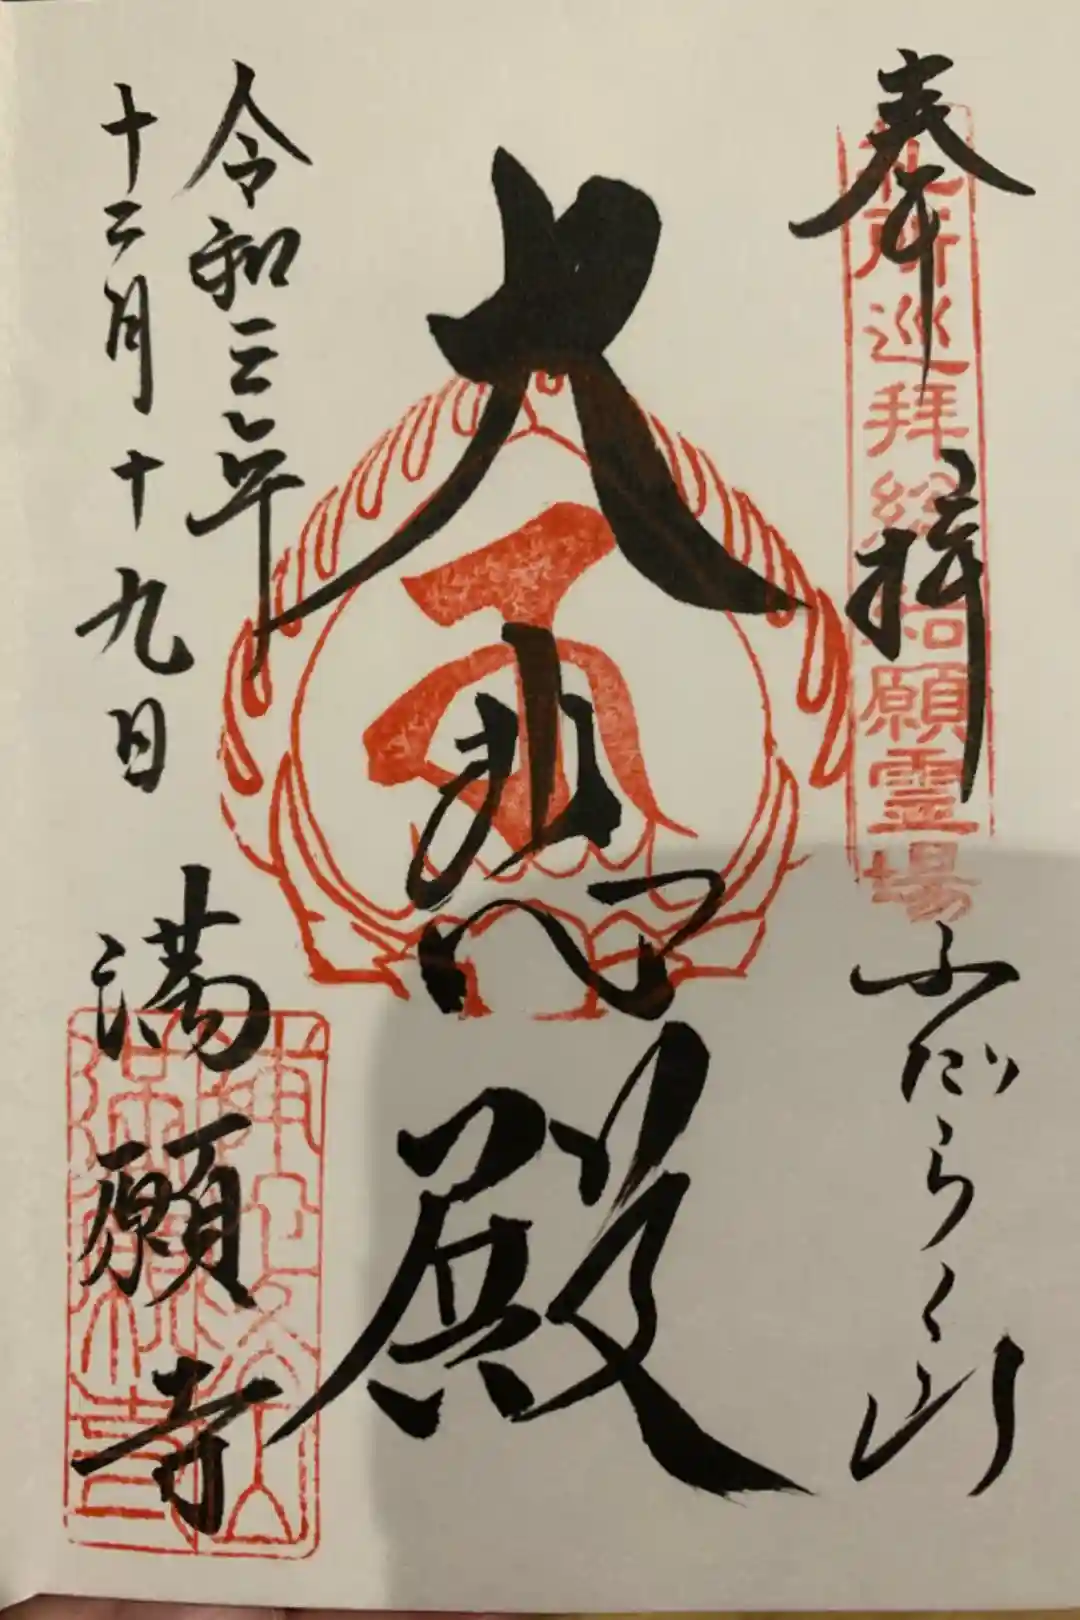 奉拝
札所巡拝総結願霊場
ふだらく山
大悲殿
令和三年
十二月十九日
満願寺